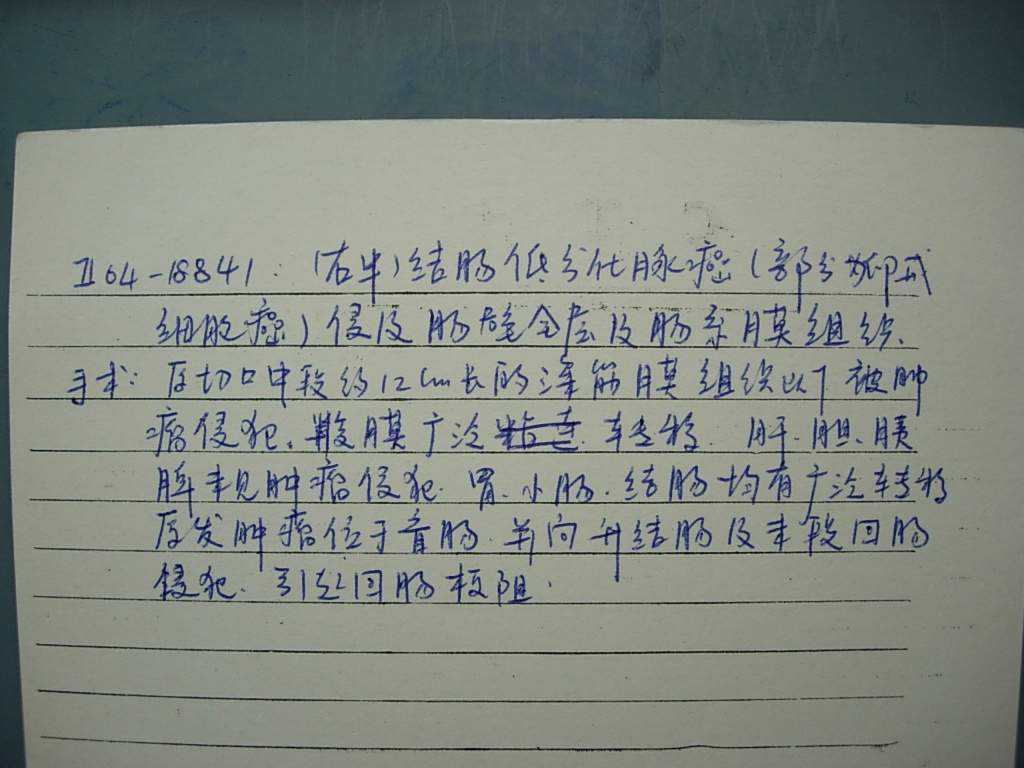 II04-18841. (右半)结肠低分化腺癌(部分为印戒
细胞癌)侵及肠壁全层及肠系膜组织.
手术: 原切口中段约12cm长的深筋膜组织以下被肿
瘤侵犯. 腹膜广泛转移. 肝、胆、胰
脾未见肿瘤侵犯. 胃、小肠、结肠均有广泛转移
原发肿瘤位于盲肠. 并向升结肠及末段回肠
侵犯. 引起回肠梗阻.